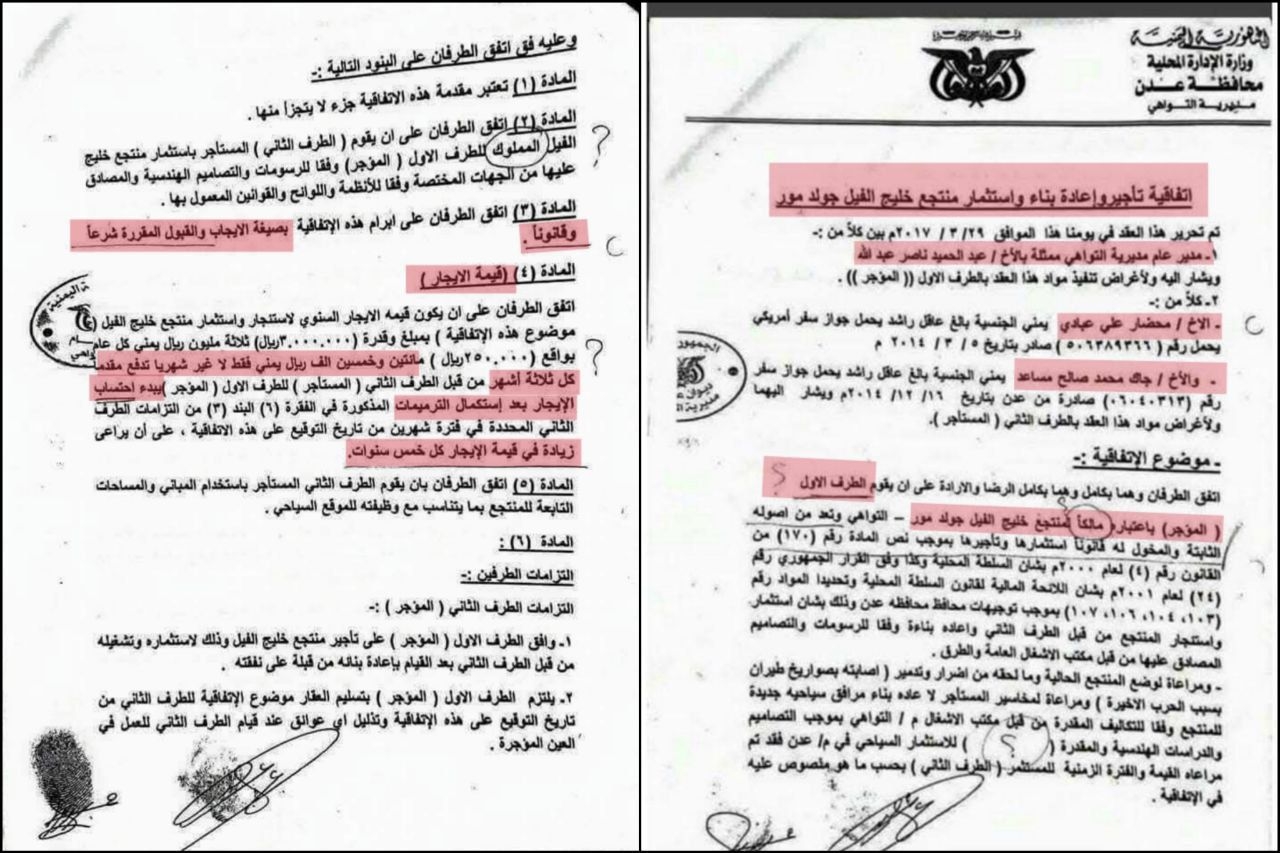 الجمهورية اليمنية
وزارة الإدارة المحلية
محافظة عدن
مديرية التواهي
اتفاقية تأجيروإعادة بناء واستثمار منتجع خليج الفيل جولد مور
تم تحرير هذا العقد في يومنا هذا الموافق ٢٠١٧/٣/٢٩م بين كلاً من :-
١- مدير عام مديرية التواهي ممثلة بالأخ / عبد الحميد ناصر عبد الله
ويشار اليه ولأغراض تنفيذ مواد هذا العقد بالطرف الاول (( المؤجر )) .
٢- كلاً من :-
- الاخ / محضار علي عبادي يمني الجنسية بالغ عاقل راشد يحمل جواز سفر أمريكي
يحمل رقم (٥٠٦٣٨٩٣٦٦) صادر بتاريخ ٥ / ٣ / ٢٠١٤ م
- والأخ / جاك محمد صالح مساعد يمني الجنسية بالغ عاقل راشد يحمل جواز سفر
رقم (٠٦٠٤٠٣١٣) صادرة من عدن بتاريخ ١٦ / ١٢ / ٢٠١٤م ويشار اليهما
ولأغراض مواد هذا العقد بالطرف الثاني ( المستأجر ).
- موضوع الإتفاقية :-
اتفق الطرفان وهما بكامل وهما بكامل الرضا والارادة على ان يقوم الطرف الاول ؟
( المؤجر) باعتباره مالكاً لمنتجع خليج الفيل جولد مور – التواهي وتعد من اصوله
الثابتة والمخول له قانوناً استثمارها وتأجيرها بموجب نص المادة رقم (١٧٠) من
القانون رقم (٤) لعام ٢٠٠٠م بشان السلطة المحلية وكذا وفق القرار الجمهوري رقم
(٢٤) لعام ٢٠٠١م بشان اللائحة المالية لقانون السلطة المحلية وتحديدا المواد رقم
(١٠٣، ١٠٤، ١٠٦، ١٠٧) بموجب توجيهات محافظ محافظه عدن وذلك بشان استثمار
واستنجار المنتجع من قبل الطرف الثاني واعاده بناءة وفقا للرسومات والتصاميم
المصادق عليها من قبل مكتب الاشغال العامة والطرق .
- ومراعاة لوضع المنتجع الحالية وما لحقه من اضرار وتدمير ( اصابته بصواريخ طيران
بسبب الحرب الاخيرة ) ومراعاة لمخاسير المستأجر لا عاده بناء مرافق سياحيه جديدة
للمنتجع وفقا للتكاليف المقدرة من قبل مكتب الاشغال م / التواهي بموجب التصاميم
والدراسات الهندسية والمقدرة ( ؟ ) للاستثمار السياحي في م/ عدن فقد تم
مراعاه القيمة والفترة الزمنية للمستثمر ( الطرف الثاني ) بحسب ما هو ملصوص عليه
في الإتفاقية .
وعليه فق اتفق الطرفان على البنود التالية :-
المادة (١) تعتبر مقدمة هذه الاتفاقية جزء لا يتجزأ منها .
المادة (٢) اتفق الطرفان على ان يقوم ( الطرف الثاني ) المستأجر باستثمار منتجع خليج
الفيل المملوك للطرف الاول ( المؤجر) وفقا للرسومات والتصاميم الهندسية والمصادق ؟
عليها من الجهات المختصة وفقا للأنظمة واللوائح والقوانين المعمول بها .
المادة (٣) اتفق الطرفان على ابرام هذه الإتفاقية بصيغة الايجاب والقبول المقررة شرعاً
وقانوناً .
المادة (٤) (قيمة الايجار )
اتفق الطرفان على ان يكون قيمه الايجار السنوي لاستنجار واستثمار منتجع خليج الفيل (
موضوع هذه الإتفاقية ) بمبلغ وقدرة (٣,٠٠٠,٠٠٠ريال) ثلاثة مليون ريال يمني كل عام
بواقع (٢٥٠,٠٠٠ريال ) مائتين وخمسين الف ريال يمني فقط لا غير شهريا تدفع مقدما ؟
كل ثلاثة أشهر من قبل الطرف الثاني ( المستأجر ) للطرف الاول ( المؤجر )يبدء احتساب
الإيجار بعد إستكمال الترميمات المذكورة في الفقرة (٦) البند (٣) من التزامات الطرف
الثاني المحددة في فترة شهرين من تاريخ التوقيع على هذه الاتفاقية ، على أن يراعى
زيادة في قيمة الإيجار كل خمس سنوات.
المادة (٥) اتفق الطرفان بان يقوم الطرف الثاني المستأجر باستخدام المباني والمساحات
التابعة للمنتجع بما يتناسب مع وظيفته للموقع السياحي .
المادة (٦) :
التزامات الطرفين :-
التزامات الطرف الثاني ( المؤجر ) :-
١- وافق الطرف الاول ( المؤجر ) على تأجير منتجع خليج الفيل وذلك لاستثماره وتشغيله
من قبل الطرف الثاني بعد القيام بإعادة بنائه من قبلة على نفقته .
٢- يلتزم الطرف الاول ( المؤجر ) بتسليم العقار موضوع الإتفاقية للطرف الثاني من
تاريخ التوقيع على هذه الإتفاقية وتذليل اي عوائق عند قيام الطرف الثاني للعمل في
العين المؤجرة .